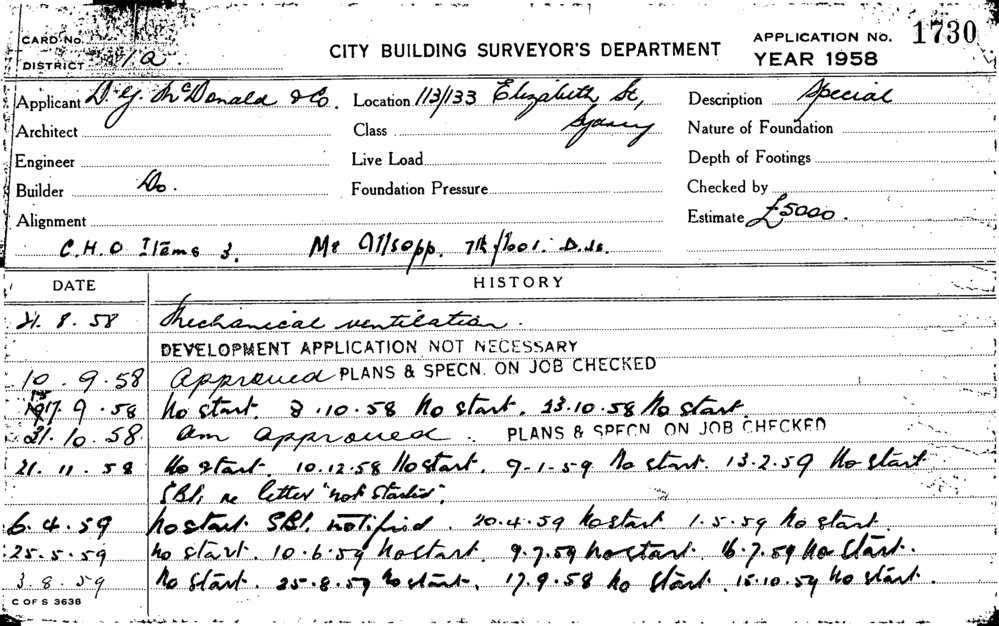 CARD No. APPLICATION No. 1730
DISTRICT 1/2 CITY BUILDING SURVEYOR'S DEPARTMENT YEAR 1958
Applicant D.Y. McDonald & Co. Location 113/133 Elizabeth St, Description Special
Architect Class Sydney Nature of Foundation
Engineer Live Load Depth of Footings
Builder Do. Foundation Pressure Checked by
Alignment Estimate £5000.
C.H.O Items 3. Mr Allsopp. 7th floor. D.Js.
DATE HISTORY
21. 8. 58 Mechanical ventilation.
DEVELOPMENT APPLICATION NOT NECESSARY
10. 9. 58 Approved PLANS & SPECN. ON JOB CHECKED
17. 9. 58 No start. 8.10.58 No start. 23.10.58 No start.
31. 10. 58. Am approved. PLANS & SPECN ON JOB CHECKED
21. 11. 58 No start. 10.12.58 No start. 9-1-59 No start. 13.2.59 No start
SBI. re letter "not started".
6. 4. 59 No start. SBI. notified. 20.4.59 No start 1.5.59 No start.
25. 5. 59 No start. 10.6.59 No start. 9.7.59 No start. 16.7.59 No start.
3. 8. 59 No start. 25.8.59 No start. 17.9.58 No start. 15.10.59 No start.
C OF S 3636